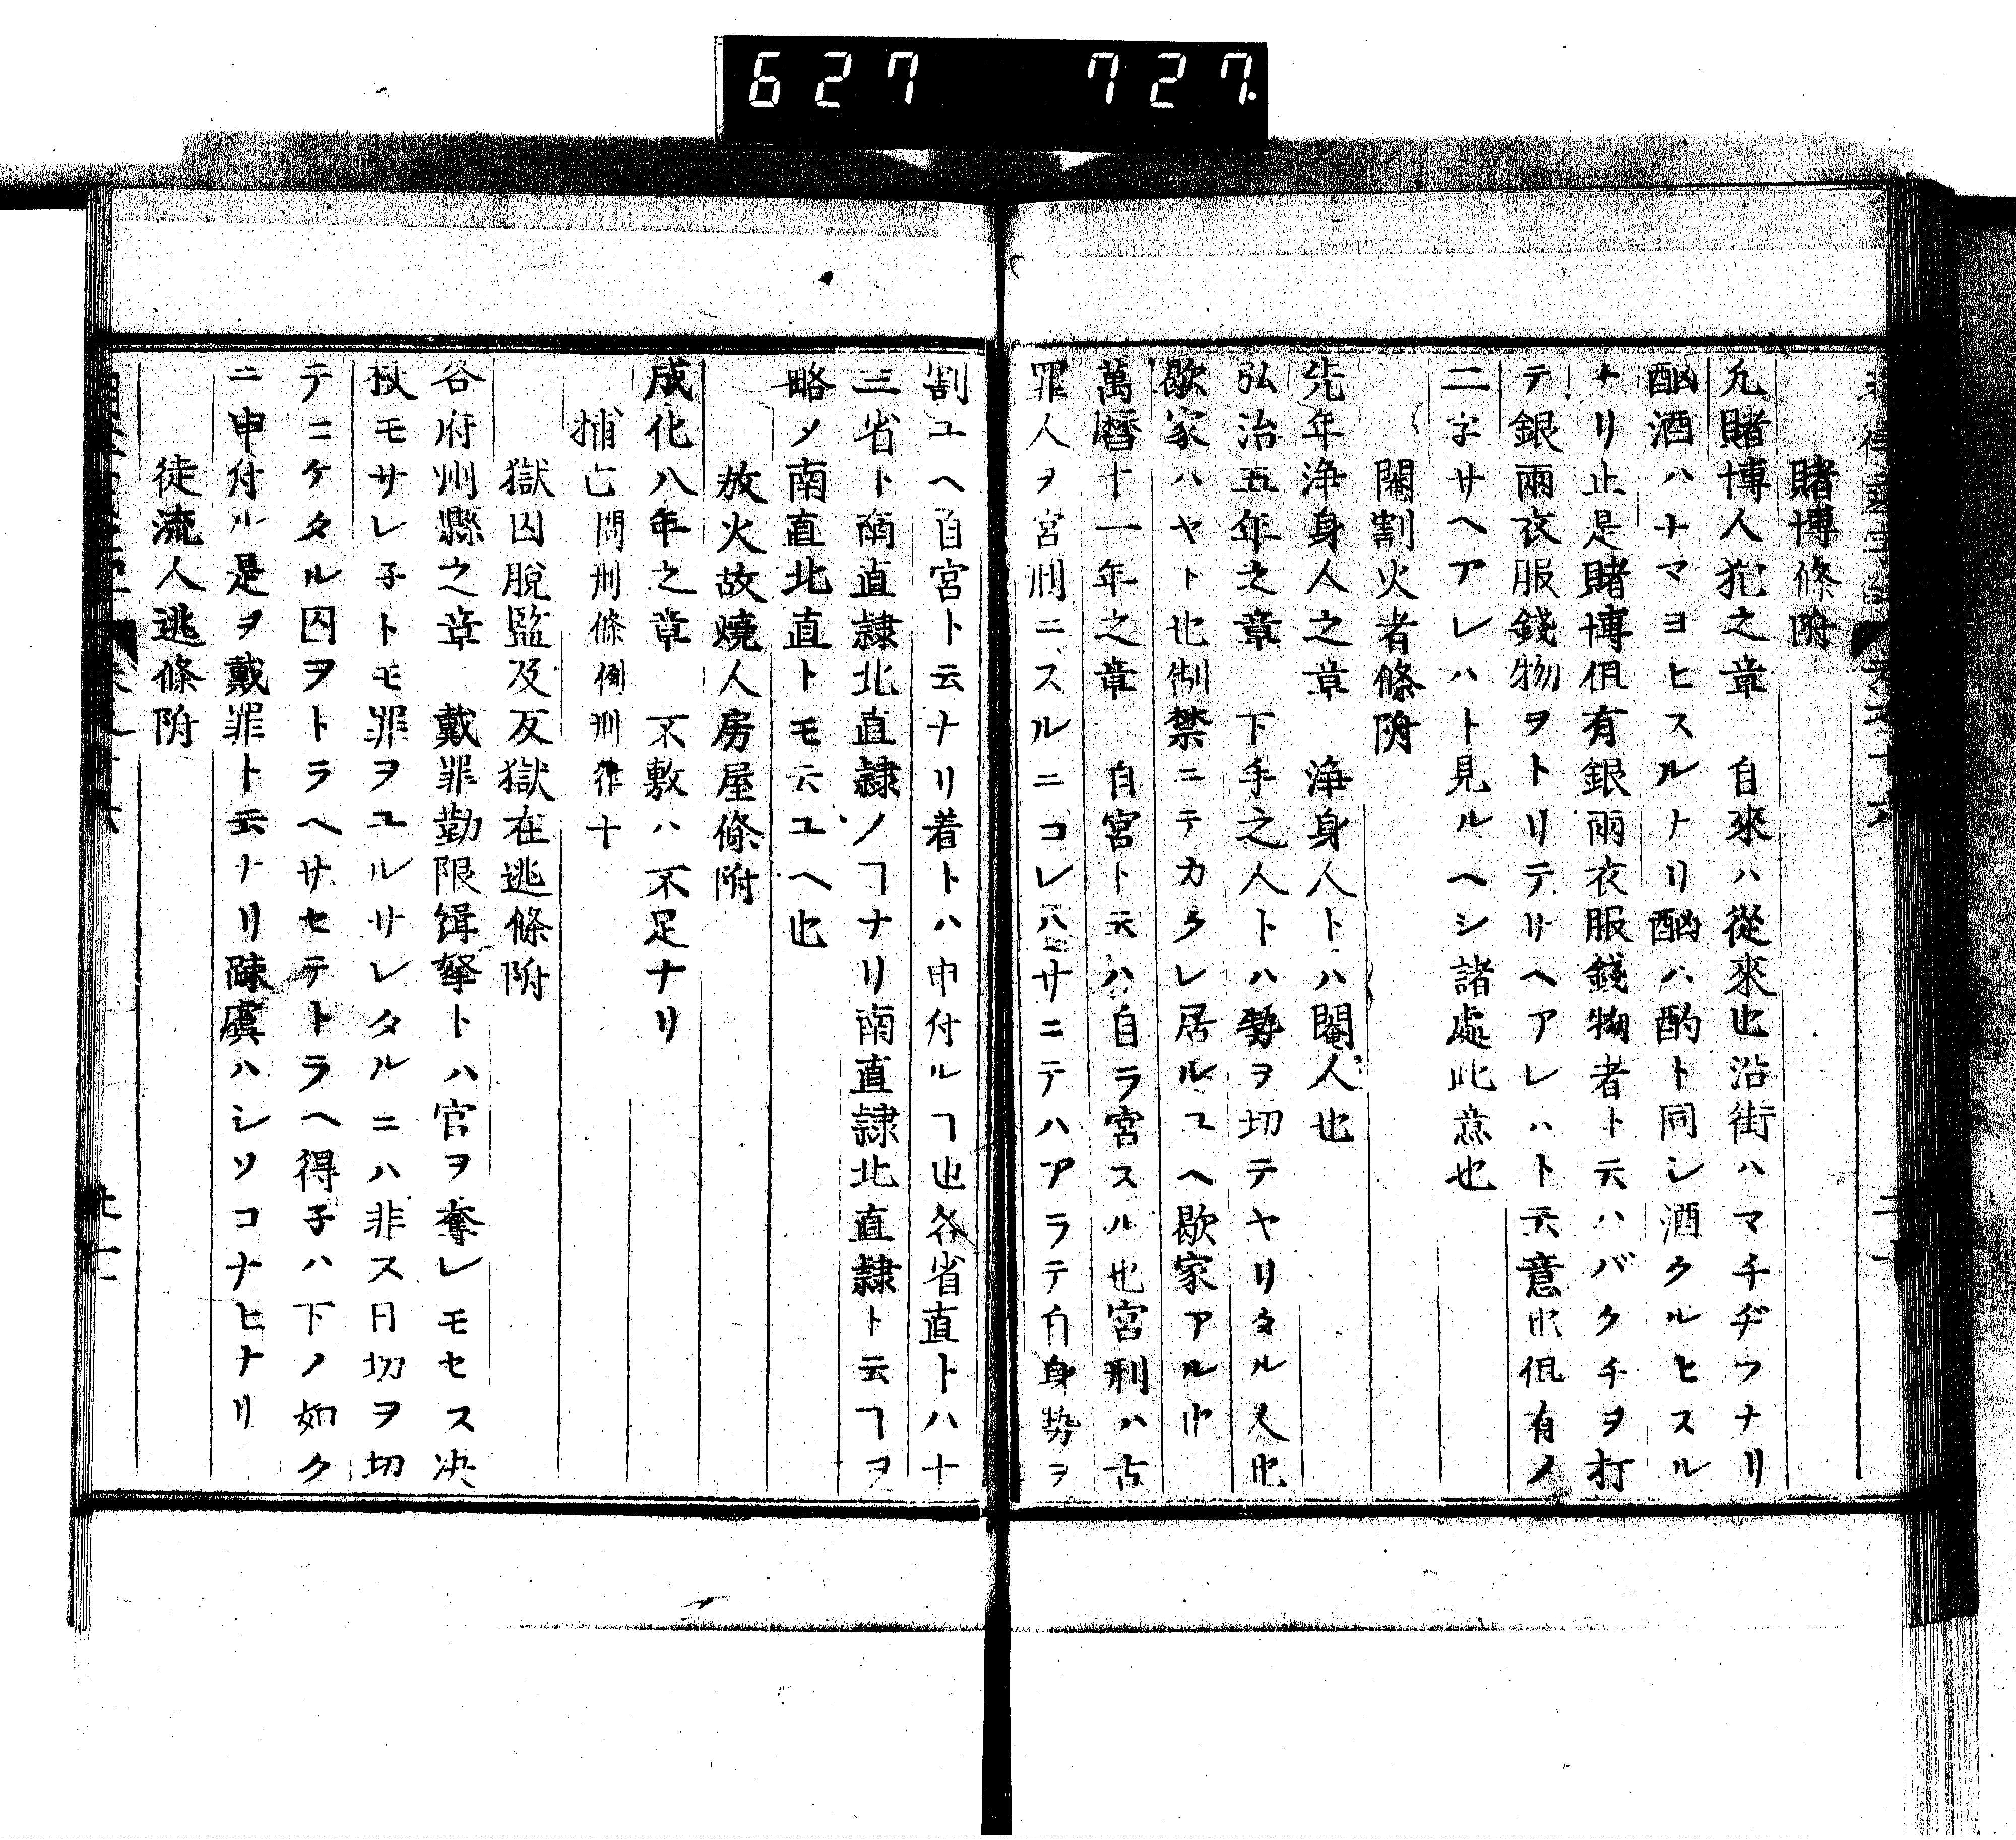 627 727.
賭博條附
凢賭博人犯之章　自來ハ從來也沿街ハマチヂウナリ
酗酒ハナマヨヒスルナリ酗ハ酌ト同シ酒クルヒスル
ナリ止是賭博但有銀兩衣服錢物者ト云ハバクチヲ打
テ銀兩衣服錢物ヲトリテサヘアレハト云意也但有ノ
二字サヘアレハト見ルヘシ諸處此意也
閹割火者條附
先年浄身人之章　浄身人トハ閹人也
弘治五年之章　下手之人トハ勢ヲ切テヤリタル人也
歇家ハヤト也制禁ニテカクレ居ルユヘ歇家アル也
萬暦十一年之章　自宮ト云ハ自ラ宮スル也宮刑ハ古
罪人ヲ宮刑ニスルニコレハサニテハアラテ自身勢ヲ
割ユヘ自宮ト云ナリ着トハ申付ルヿ也各省直トハ十
三省ト南直隷北直隷ノヿナリ南直隷北直隷ト云ヿヲ
略ノ南直北直トモ云ユヘ也
放火故燒人房屋條附
成化八年之章　不敷ハ不足ナリ
捕亡問刑條例

獄囚脫監及反獄在逃條附
各府州縣之章　戴罪勤限緝拏トハ官ヲ奪レモセス决
杖モサレ子トモ罪ヲユルサレタルニハ非ス日切ヲ切
テニケタル囚ヲトラヘサセテトラヘ得子ハ下ノ如ク
ニ申付ル是ヲ戴罪ト云ナリ疎虞ハシソコナヒナリ
徒流人逃條附